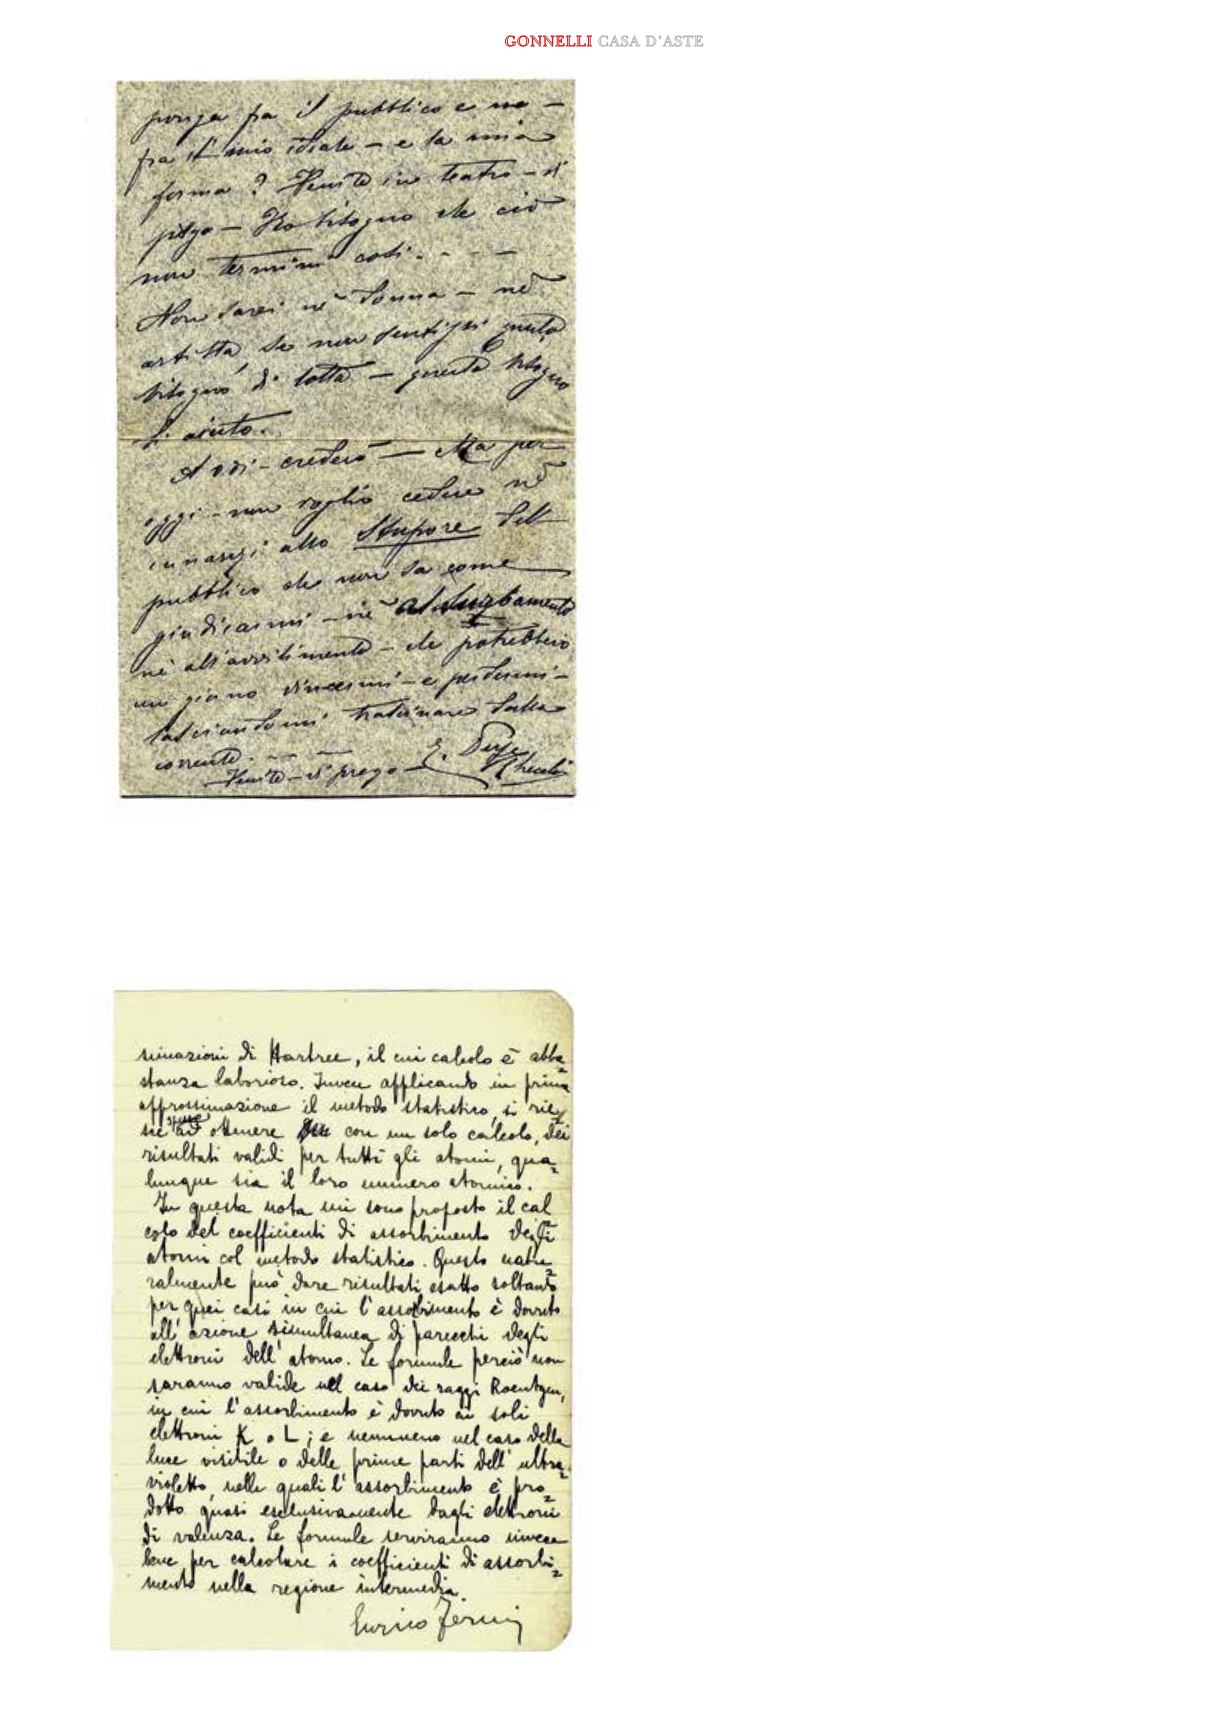 GONNELLI CASA D'ASTE
ponga fra il pubblico e me –
fra il mio ideale – e la mia
forma? Venite in teatro – vi
prego – Ho bisogno che ciò
non termini così. - - –
Non sarei nè donna – nè
artista, se non sentissi questo
bisogno di lotta – questo bisogno
d'aiuto.
– crederò — Ma per
oggi – non voglio cedere nè
innanzi allo Stupore del
pubblico che non sa come
giudicarmi – nè
nè all'avvilimento – che potrebbero
un giorno vincermi – e perdermi –
lasciandomi trascinare dalla
corrente. – – —
Venite – vi prego – E. Duse
Checchi
simazioni di Hartree, il cui calcolo è abba=
stanza laborioso. Invece applicando in prima
approssimazione il metodo statistico, si rie=
sce ad ottenere con un solo calcolo, dei
risultati validi per tutti gli atomi, qua=
lunque sia il loro numero atomico.
In questa nota mi sono proposto il cal
colo del coefficienti di assorbimento degli
atomi col metodo statistico. Questo natu=
ralmente può dare risultati esatto soltanto
per quei casi in cui l'assorbimento è dovuto
all'azione simultanea di parecchi degli
elettroni dell'atomo. Le formule perciò non
saranno valide nel caso dei raggi Roentgen,
in cui l'assorbimento è dovuto ai soli
elettroni K o L; e nemmeno nel caso della
luce visibile o delle prime parti dell'ultra=
violetto, nelle quali l'assorbimento è pro=
dotto quasi esclusivamente dagli elettroni
di valenza. Le formule serviranno invece
bene per calcolare i coefficienti di assorbi=
mento nella regione intermedia.
Enrico Fermi